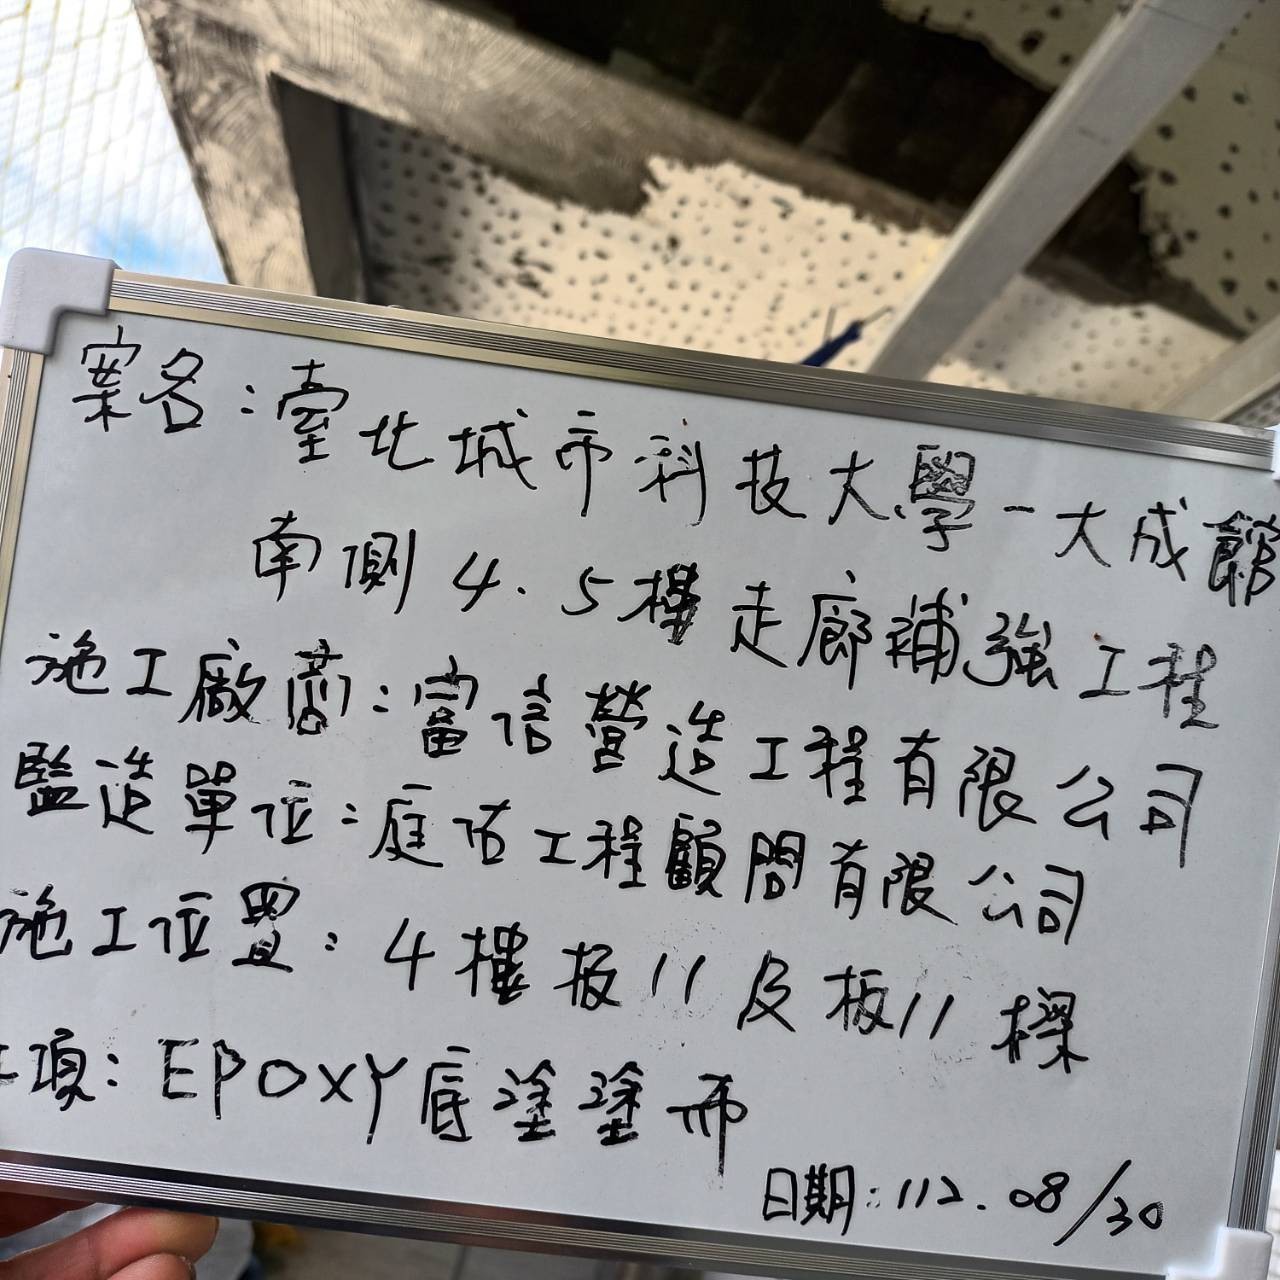 案名：臺北城市科技大學－大成館
南側4.5樓走廊補強工程
施工廠商：富信營造工程有限公司
監造單位：庭佑工程顧問有限公司
施工位置：4樓板11及板11樑
工項：EPOXY底塗塗佈
日期：112.08/30